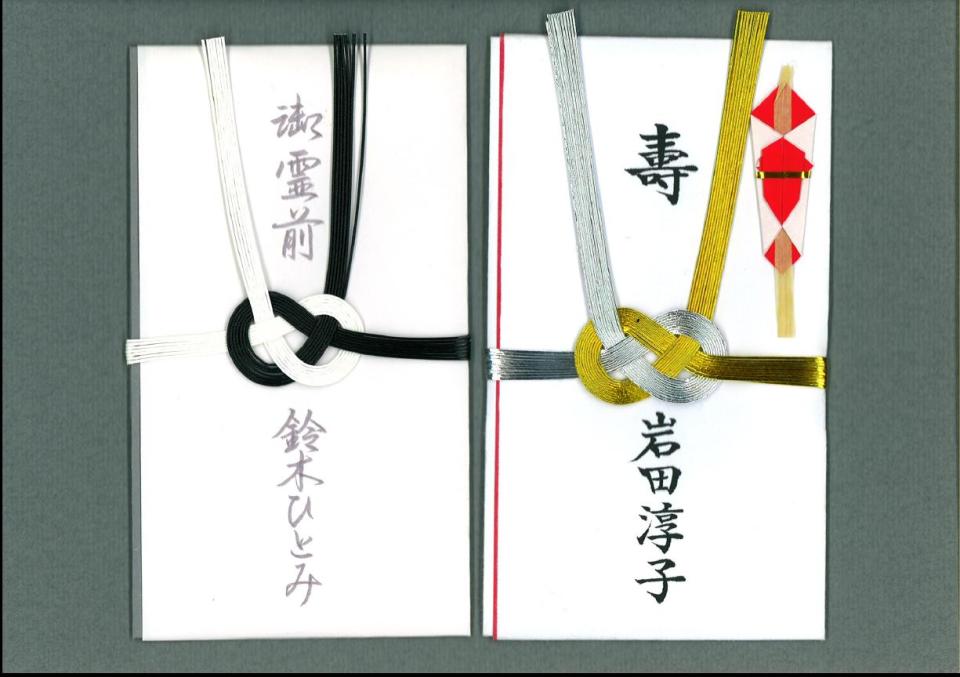 御霊前
鈴木ひとみ
壽
岩田淳子